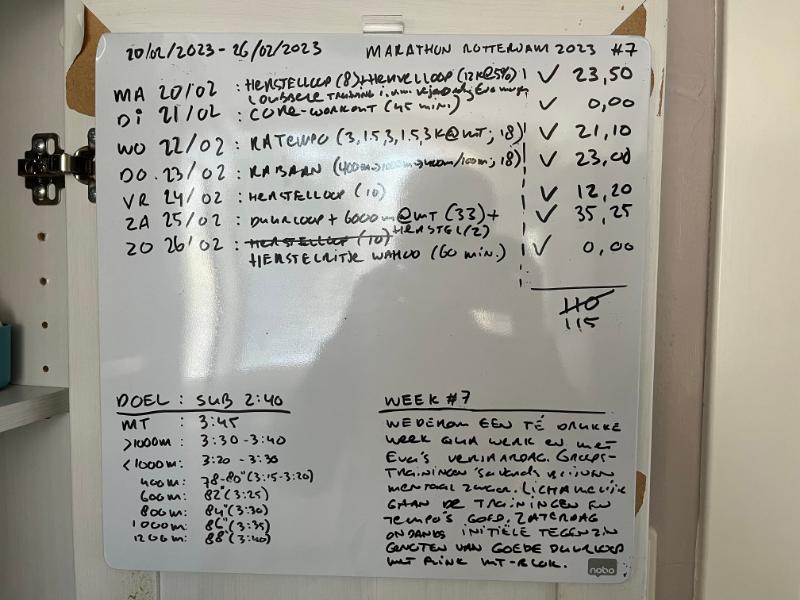 20/02/2023 - 26/02/2023 MARATHON ROTTERDAM 2023 #7
MA 20/02 : HERSTELLOOP (8) + HEUVELLOOP (12K@5%) ✓ 23,50
DUBBELE TRAINING i.v.m. verjaardag Eva morgen
DI 21/02 : CORE-WORKOUT (45 min.) ✓ 0,00
WO 22/02 : RATEMPO (3,1.5,3,1.5,3K@MT; 18) ✓ 21,10
DO 23/02 : RABAAN (400m→1000m→400m/100m; 18) ✓ 23,00
VR 24/02 : HERSTELLOOP (10) ✓ 12,20
ZA 25/02 : DUURLOOP + 6000m@MT (33) + ✓ 35,25
HERSTEL (2)
ZO 26/02 : HERSTELLOOP (10) ✓ 0,00
HERSTELRITJE WAHOO (60 min.)
110
115
DOEL : SUB 2:40
MT : 3:45
>1000m : 3:30 - 3:40
<1000m : 3:20 - 3:30
400m : 78-80" (3:15-3:20)
600m : 82" (3:25)
800m : 84" (3:30)
1000m : 86" (3:35)
1200m : 88" (3:40)
WEEK #7
WEDEROM EEN TÉ DRUKKE
WEEK QUA WERK EN MET
EVA'S VERJAARDAG. GROEPS-
TRAININGEN 'S AVONDS BLIJVEN
MENTAAL ZWAAR. LICHAMELIJK
GAAN DE TRAININGEN EN
TEMPO'S GOED. ZATERDAG
ONDANKS INITIËLE TEGENZIN
GENOTEN VAN GOEDE DUURLOOP
MET FLINK MT-BLOK.
nobo